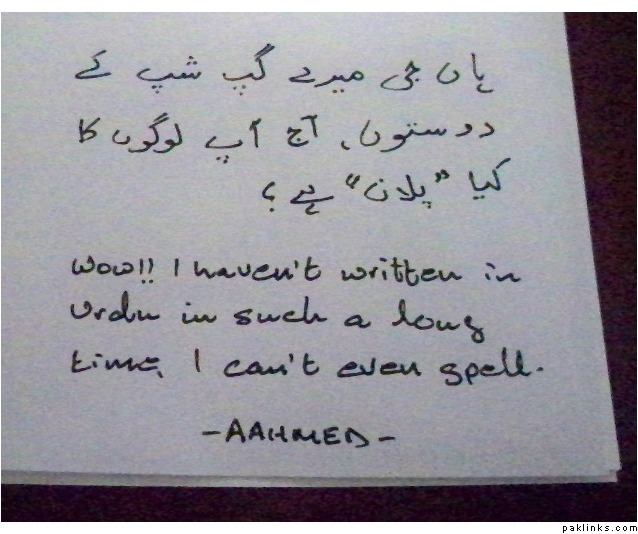 ہاں جی میرے گپ شپ کے
دوستوں، آج آپ لوگوں کا
کیا “پلان” ہے؟
WOW!! I haven't written in
Urdu in such a long
time, I can't even spell.
-AAHMED-
paklinks.com